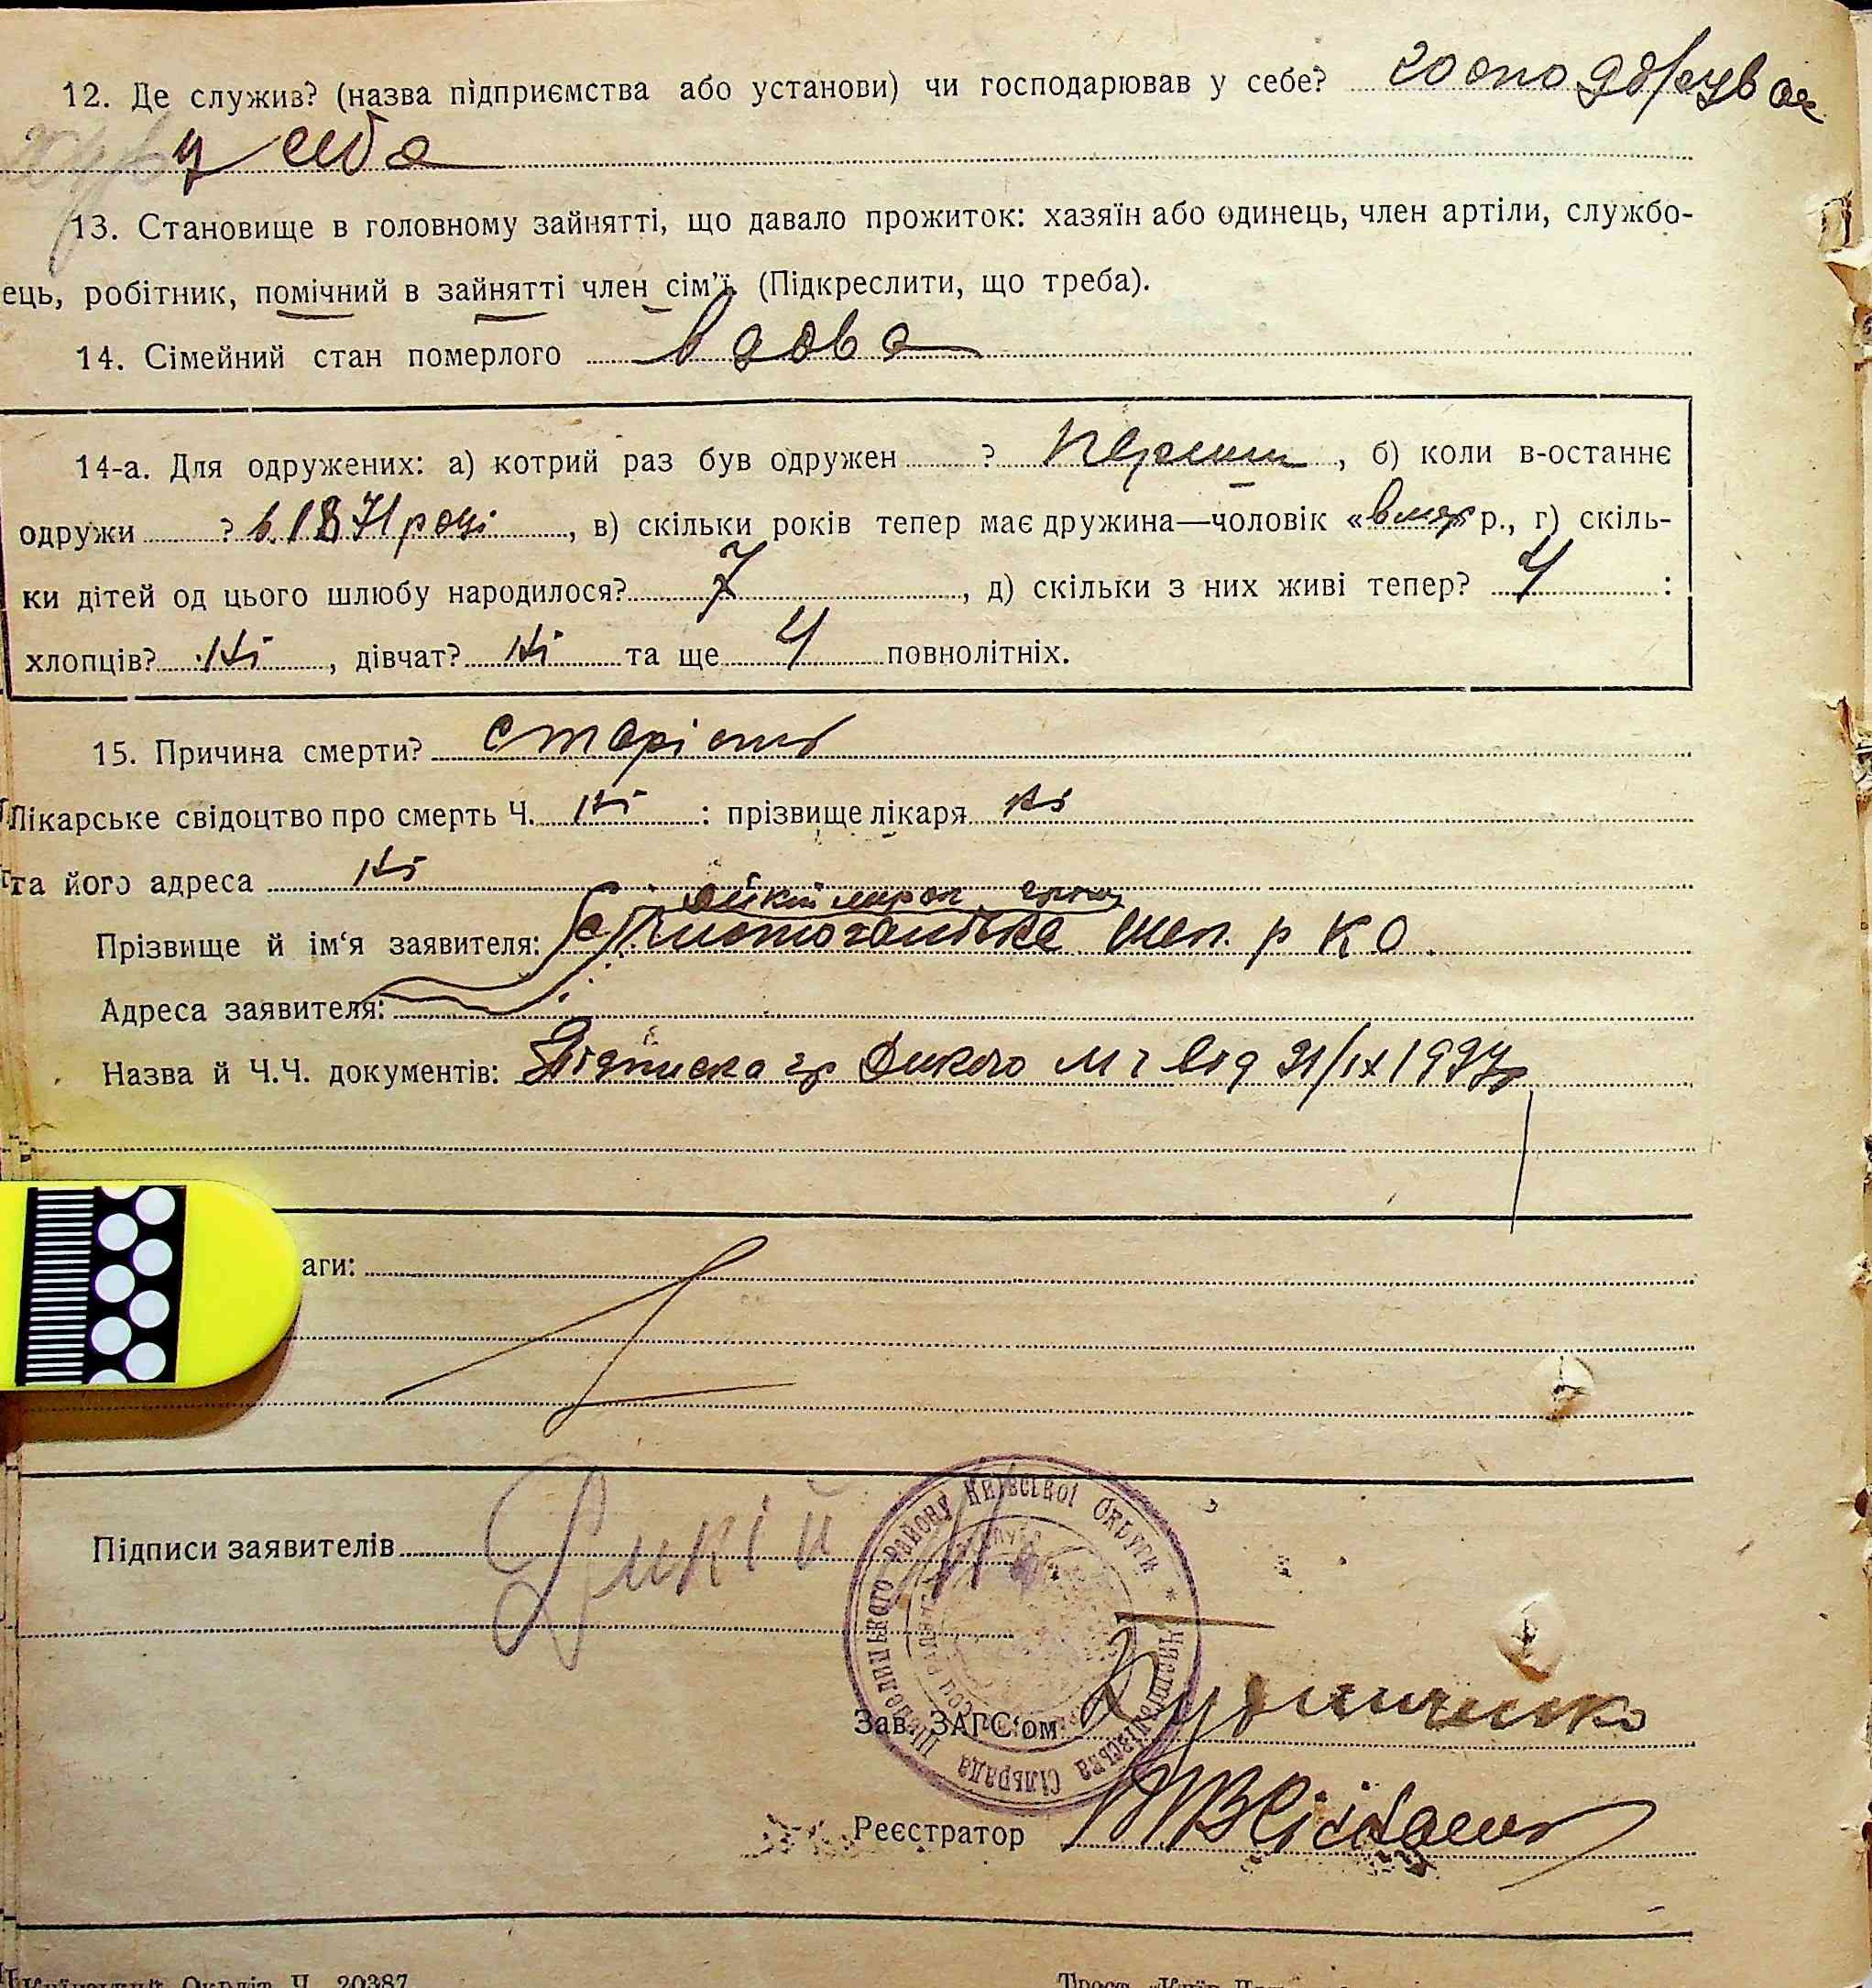 12. Де служив? (назва підприємства або установи) чи господарював у себе? господарував
у себе
13. Становище в головному зайнятті, що давало прожиток: хазяїн або одинець, член артіли, службо-
ець, робітник, помічний в зайнятті член сім'ї. (Підкреслити, що треба).
14. Сімейний стан померлого вдова
14-а. Для одружених: а) котрий раз був одружен ? перший, б) коли в-останнє
одружи ? в 1871 році, в) скільки років тепер має дружина—чоловік «вмер р., г) скіль-
ки дітей од цього шлюбу народилося? 7, д) скільки з них живі тепер? 4 :
хлопців? ні, дівчат? ні та ще 4 повнолітніх.
15. Причина смерти? старість
Лікарське свідоцтво про смерть Ч. ні : прізвище лікаря ні
та його адреса ні
Прізвище й ім‘я заявителя: р К О
Адреса заявителя:
Назва й Ч.Ч. документів: Підписка гр Дикого М г від 21/IX 1927р
аги:
Підписи заявителів Дикій М
Шепелицького Району Київської Округи * Чистогалівська Сільрада
Зав. ЗАГС‘ом
Реєстратор
Окрліт Ч. 20387
Трест „Київ